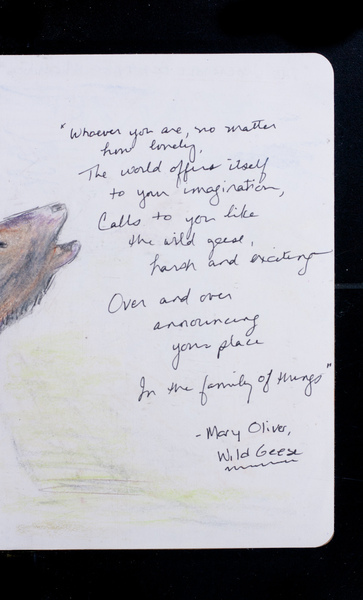 "Whoever you are, no matter
how lonely,
The world offers itself
to your imagination,
Calls to you like
the wild geese,
harsh and exciting
Over and over
announcing
your place
In the family of things"
- Mary Oliver,
Wild Geese